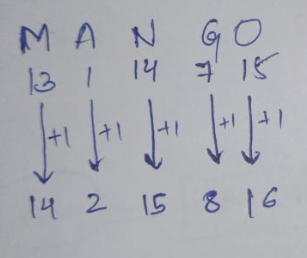 M A N G O
13 1 14 7 15
+1 +1 +1 +1 +1
14 2 15 8 16